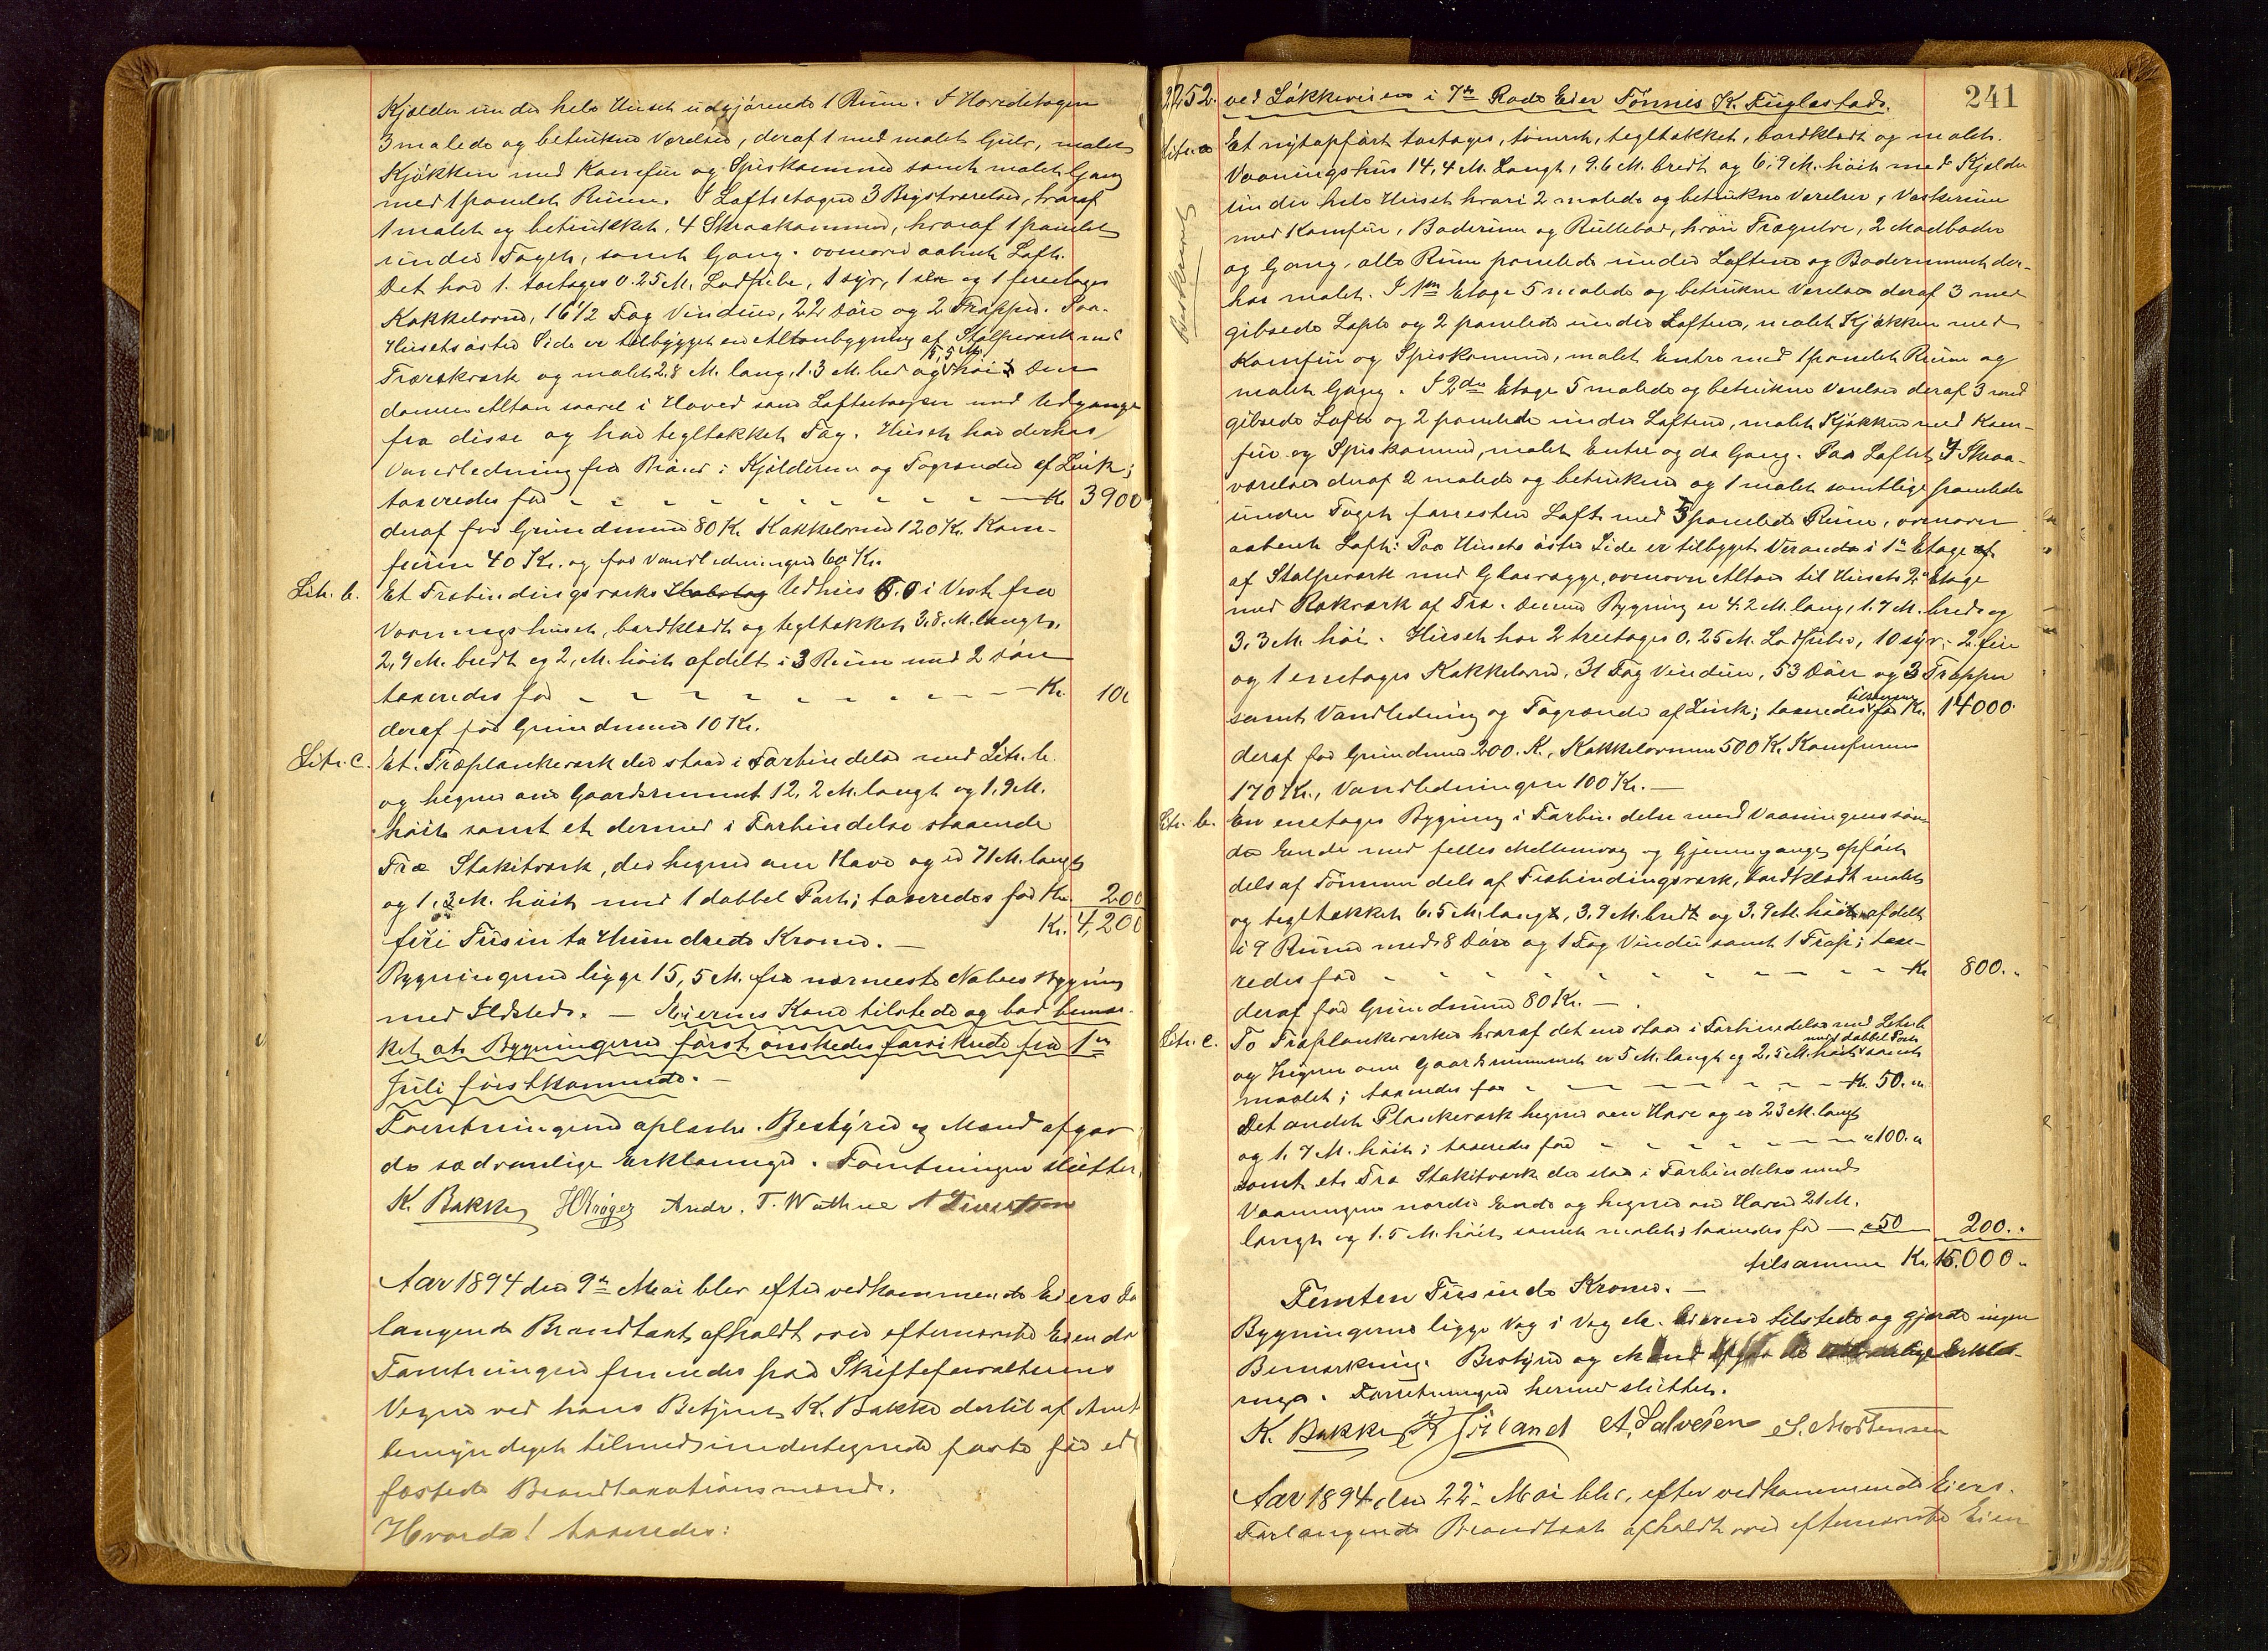 Kjelder under hele Huset udgjørende 1 Rum. I Hovedetagen
3 malede og betrukne Værelser, deraf 1 med malet Gulv, malet
Kjøkken med Komfur og Spiskammer samt malet Gang
med 1 panelet Rum. I Loftsetagen 3 Bigstværelser, hvoraf
1 malet og betrukket, 4 Skraakammer, hvoraf 1 panelet
under Taget, samt Gang. ovenover aabent Loft.
Det har 1. toetages 0.25 M. Ladpibe, 1 syv, 1 sex og 1 fireetages
Kakkelovne, 16 1/2 Fag Vinduer, 22 Døre og 2 Trapper. Paa
Husets østre Side er tilbygget en Altanbygning af Stolpeværk med
Træværk og malet 2.8 M. lang, 1.3 M. bred og 5,5 M. høi. Den
danner Altan saavel i Hoved som Loftsetagen med Udgange
fra disse og har tegltækket Tag. Huset har derhos
Vandledning fra Brønd i Kjelderen og Tagrender af Zink;
taxeredes for - - - - - - - - Kr. 3900
deraf for Grundmur 80 Kr. Kakkelovne 120 Kr. Kom-
furen 40 Kr. og for Vandledningen 60 Kr.
Litr. b. Et Træbindingsværks Udhus 6.0 i Vest fra
Vaaningshuset, bordklædt og tegltækket 3.8. M. langt,
2,9 M. bredt og 2, M. høit afdelt i 3 Rum med 2 Døre
taxeredes for - - - - - - - - Kr. 100
deraf for Grundmur 10 Kr.
Litr. c. Et Træplankeværk der staar i Forbindelse med Litr. b.
og hegner om Gaardsrummet 12,2 M. langt og 1,9 M.
høit samt et dermed i Forbindelse staaende
Træ Stakitværk, der hegner om Have og er 71 M. langt
og 1,3 M. høit med 1 dobbel Port; taxeredes for Kr. 200
Kr. 4,200
firi Tusin to Hundrede Kroner. —
Bygningerne ligge 15,5 M. fra nærmeste Nabos Bygning
med Ildsted. — Eierens Kone tilstede og bad bemær-
ket at Bygningerne først ønskedes forsikrede fra 1ste
Juli førstkommende. —
Forretningen oplæstes. Bestyrer og Mænd afgav
de sædvanlige Erklæringer. Forretningen sluttet.
K. Bakke H Krøger Andr. T. Wathne
Aar 1894 den 9de Mai blev efter vedkommende Eiers For
langende Brandtaxt afholdt over efternævnte Eiendo
Forretningen fremmedes for Skifteforvalterens
Vegne ved hans Betjent K. Bakke dertil af Amt
bemyndiget tilmed undertegnede faste for ed
fæstede Brandtaxationsmænd.
Hvorda! taxeredes:
241
2252. ved Løkkeveien i 7de Rode Eier Tønnes K. Fuglestad.
Litr. a Et nyt opført toetages, tømret, tegltækket, bordklædt og malet
Vaaningshus 14,4 M. Langt, 9.6 M. bredt og 6,9 M. høit med Kjelder
under hele Huset hvori 2 malede og betrukne Værelser, Vaskerum
med Komfur, Baderum og Rullebod, hvori Trægulve, 2 Madboder
og Gang, alle Rum panelede under Loftene og Baderummet der-
hos malet. I 1ste Etage 5 malede og betrukne Værelser deraf 3 med
gibsede Lofte og 2 panelede under Loftene, malet Kjøkken med
Komfur og Spiskammer, malet Entre med 1 panelet Rum og
malet Gang. I 2den Etage 5 malede og betrukne Værelser deraf 3 med
gibsede Lofte og 2 panelede under Loftene, malet Kjøkken med Kom-
fur og Spiskammer, malet Entre og do Gang. Paa Loftet 7 Skraa-
værelser deraf 2 malede og betrukne og 1 malet samtlige panelede
under Taget forresten Loft med 3 panelede Rum, ovenover
aabent Loft. Paa Husets østre Side er tilbygget Veranda i 1ste Etage af
af Stolpeværk med Glasvægge, ovenover Altan til Husets 2den Etage
med Rækværk af Træ. Denne Bygning er 4.2 M. lang, 1.7 M. bred og
3,3 M. høi. Huset har 2 treetages 0,25 M. Ladpiber, 10 syv, 2 fire
og 1 enetages Kakkelovne, 31 Fag Vinduer, 53 Døre og 3 Trapper
samt Vandledning og Tagrender af Zink; taxeredes tilsammen for Kr. 14000
deraf for Grundmur 200. Kr., Kakkelovnene 500 Kr. Komfurene
170 Kr., Vandledningen 100 Kr. —
Litr. b. En enetages Bygning i Forbindelse med Vaaningens søn-
dre Ende med felles Mellemvæg og Gjennemgange, opført
dels af Tømmer dels af Træbindingsværk, bordklædt malet
og tegltækket 6,5 M. langt, 3,9 M. bredt og 3,9 M. høit afdelt
i 9 Rum med 8 Døre og 1 Fag Vindue samt 1 Trap; taxe-
redes for - - - - - - - - Kr. 800. „
deraf for Grundmur 80 Kr. —
Litr. c. To Træplankeværker hvoraf det ene staar i Forbindelse med Litr. b
og hegner om Gaardsrummet er 5 M. langt og 2,5 M. høit med dobbel Port samt
malet; taxeredes for - - - - Kr. 50. „
Det andet Plankeværk hegner om Have og er 23 M. langt
og 1.7 M. høit; taxeredes for - - - - „ 100. „
samt et Træ Stakitværk der staar i Forbindelse med
Vaaningens nordre Ende og hegner om Haven 21 M.
langt og 1.5 M. høit samt malet; taxeredes for — „ 50 200. „
tilsammen Kr. 15.000 „
Femten Tusinde Kroner. —
Bygningerne ligge Væg i Væg etc. Eieren tilstede og gjorde ingen
Bemærkning. Bestyrer og Mænd afgav de sædvanlige Erklæ-
ringer. Forretningen hermed sluttet.
K. Bakke A. Salvesen S. Mortensen
Aar 1894 den 22de Mai blev, efter vedkommende Eiers
Forlangende Brandtaxt afholdt over efternævnte Eien